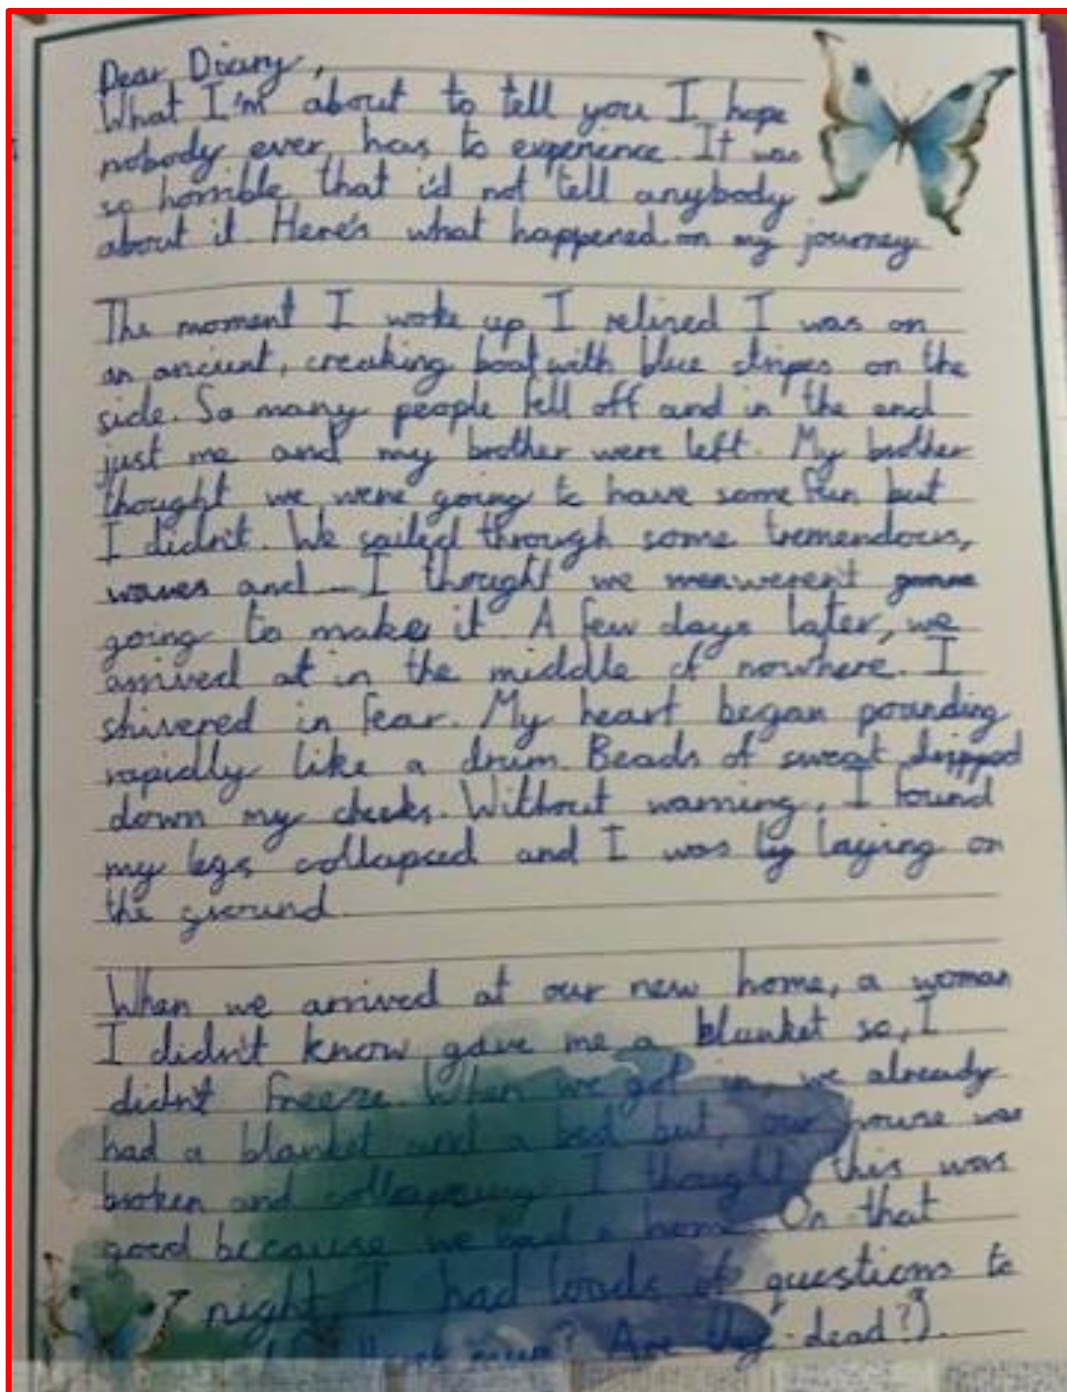 Dear Diary,
What I'm about to tell you I hope
nobody ever has to experience. It was
so horrible that i'd not tell anybody
about it. Here's what happened on my journey
The moment I woke up, I relised I was on
an anciunt, creaking boat with blue stripes on the
side. So many people fell off and in the end
just me and my brother were left. My brother
thought we were going to have some fun but
I didn't. We sailed through some tremendous,
waves and I thought we weren't
going to make it. A few days later, we
arrived at in the middle of nowhere. I
shivered in fear. My heart began pounding
rapidly like a drum. Beads of sweat dripped
down my cheeks. Without warning, I found
my legs collapsed and I was laying on
the ground.
When we arrived at our new home, a woman
I didn't know gave me a blanket so, I
didn't freeze. When we got in, we already
had a blanket and a bed but, our house was
broken and collapsing. I thought this was
good because we had a home. On that
night, I had loads of questions to
mum? Are they dead?).